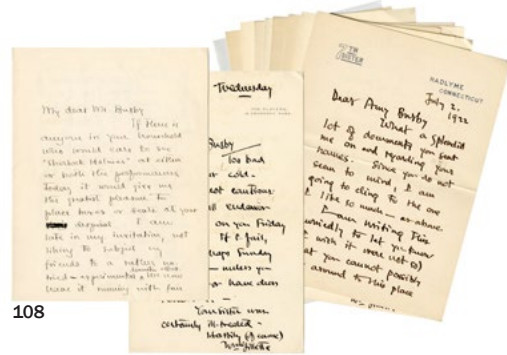 My dear Mr. Busby
If there is
anyone in your household
who would care to see
"Sherlock Holmes" at either
or both the performances
today it would give me
the greatest pleasure to
place boxes or seats at your
disposal. I am
late in my invitation, not
wishing to subject my
friends to a rather
leave it running with
Wednesday
THE PLAYERS
Busby
Too bad
cold.
not cautious
endeavor
on you Friday
If I fail,
Sunday
unless you
have done
Your sister was
certainly ill-treated -
Hastily (of course)
Wm Gillette
7TH
SISTER
HADLYME
CONNECTICUT
July 2,
1922
Dear Amy Busby
What a splendid
lot of documents you sent
me on and regarding your
names. Since you do not
seem to mind, I am
going to cling to the one
I like so much - as above.
I am writing this
hurriedly to let you know
with it were not so)
that you cannot possibly
around to this place
108